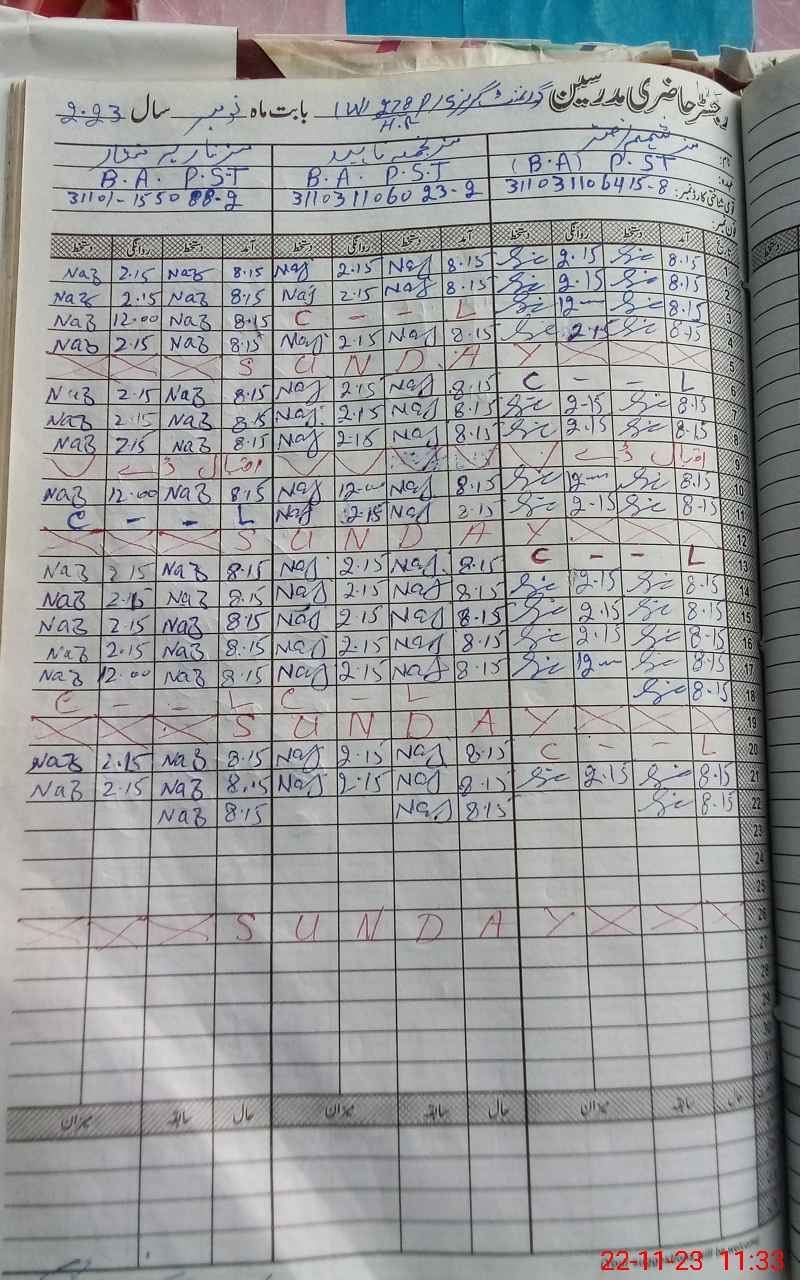 رجسٹر حاضری مدرسین گورنمنٹ گرلز پ/س 278 (W) بابت ماہ نومبر سال 2023
H.R
(B.A) P.S.T B.A. P.S.T B.A. P.S.T
31103110 6415-8 3110311060 23-2 31101-1550 88-2
آمد دستخط روانگی دستخط آمد دستخط روانگی دستخط آمد دستخط روانگی دستخط
1 8.15 2.15 8.15 Naj 2.15 Naj 8.15 Naz 2.15 Naz
2 8.15 2.15 8.15 Naj 2.15 Naj 8.15 Naz 2.15 Naz
3 8.15 12 L - - C 8.15 Naz 12.00 Naz
4 8.15 2.15 8.15 Naj 2.15 Naj 8.15 Naz 2.15 Naz
5 S U N D A Y
6 C - - L 8.15 Naj 2.15 Naj 8.15 Naz 2.15 Naz
7 8.15 2.15 8.15 Naj 2.15 Naj 8.15 Naz 2.15 Naz
8 8.15 2.15 8.15 Naj 2.15 Naj 8.15 Naz 2.15 Naz
9 اقبال ڈے اقبال ڈے
10 8.15 12 8.15 Naj 12 Naj 8.15 Naz 12.00 Naz
11 8.15 2.15 Naj 2.15 Naj C - - L
12 S U N D A Y
13 C - - L 8.15 Naj 2.15 Naj 8.15 Naz 2.15 Naz
14 8.15 2.15 8.15 Naj 2.15 Naj 8.15 Naz 2.15 Naz
15 8.15 2.15 8.15 Naj 2.15 Naj 8.15 Naz 2.15 Naz
16 8.15 2.15 8.15 Naj 2.15 Naj 8.15 Naz 2.15 Naz
17 8.15 12 8.15 Naj 2.15 Naj 8.15 Naz 12.00 Naz
18 8.15 C - L C - - L
19 S U N D A Y
20 C - - L 8.15 Naj 2.15 Naj 8.15 Naz 2.15 Naz
21 8.15 2.15 8.15 Naj 2.15 Naj 8.15 Naz 2.15 Naz
22 8.15 8.15 Naj 8.15 Naz
23
24
25
26 S U N D A Y
27
28
29
30
31
حال سابقہ میزان حال سابقہ میزان حال سابقہ میزان
22-11-23 11:33